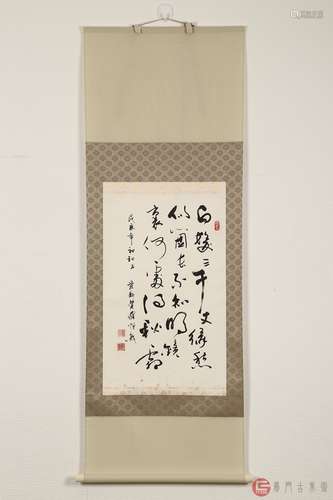 白髮三千丈緣愁
似箇長不知明鏡
裏何處得秋霜
戊辰年初秋